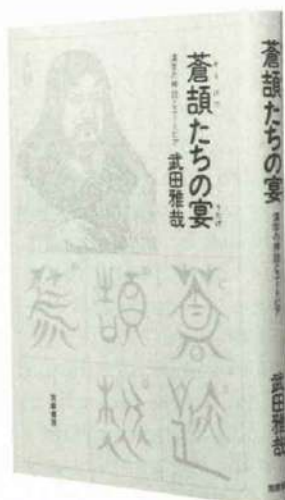 蒼頡たちの宴
そうけつ
うたげ
漢字の神話とユートピア
武田雅哉
筑摩書房
蒼頡たちの宴
漢字の神話とユートピア
武田雅哉
筑摩書房